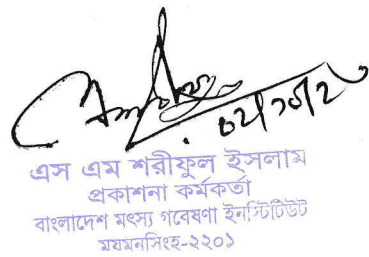 এস এম শরীফুল ইসলাম
প্রকাশনা কর্মকর্তা
বাংলাদেশ মৎস্য গবেষণা ইনস্টিটিউট
ময়মনসিংহ-২২০১